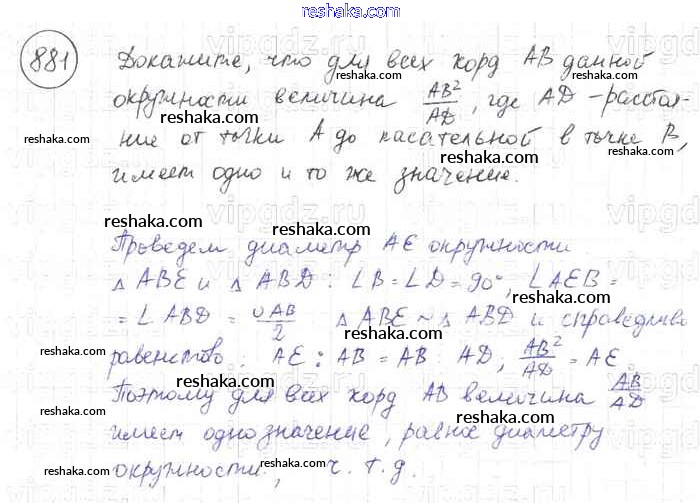 reshaka.com
881 Докажите, что для всех хорд AB данной
reshaka.com reshaka.com
окружности величина AB²/AD, где AD – расстоя-
reshaka.com reshaka.com
ние от точки A до касательной в точке B,
reshaka.com
имеет одно и то же значение.
reshaka.com
reshaka.com
Проведем диаметр AE окружности.
reshaka.com
△ ABE и △ ABD : ∠B = ∠D = 90°, ∠AEB =
reshaka.com reshaka.com
= ∠ABD = ∪AB/2 △ ABE ~ △ ABD и справедливо
reshaka.com
равенство: AE : AB = AB : AD, AB²/AD = AE
reshaka.com
Поэтому для всех хорд AB величина AB/AD
reshaka.com reshaka.com
имеет одно значение, равное диаметру
reshaka.com
окружности., ч. т. д.
reshaka.com reshaka.com